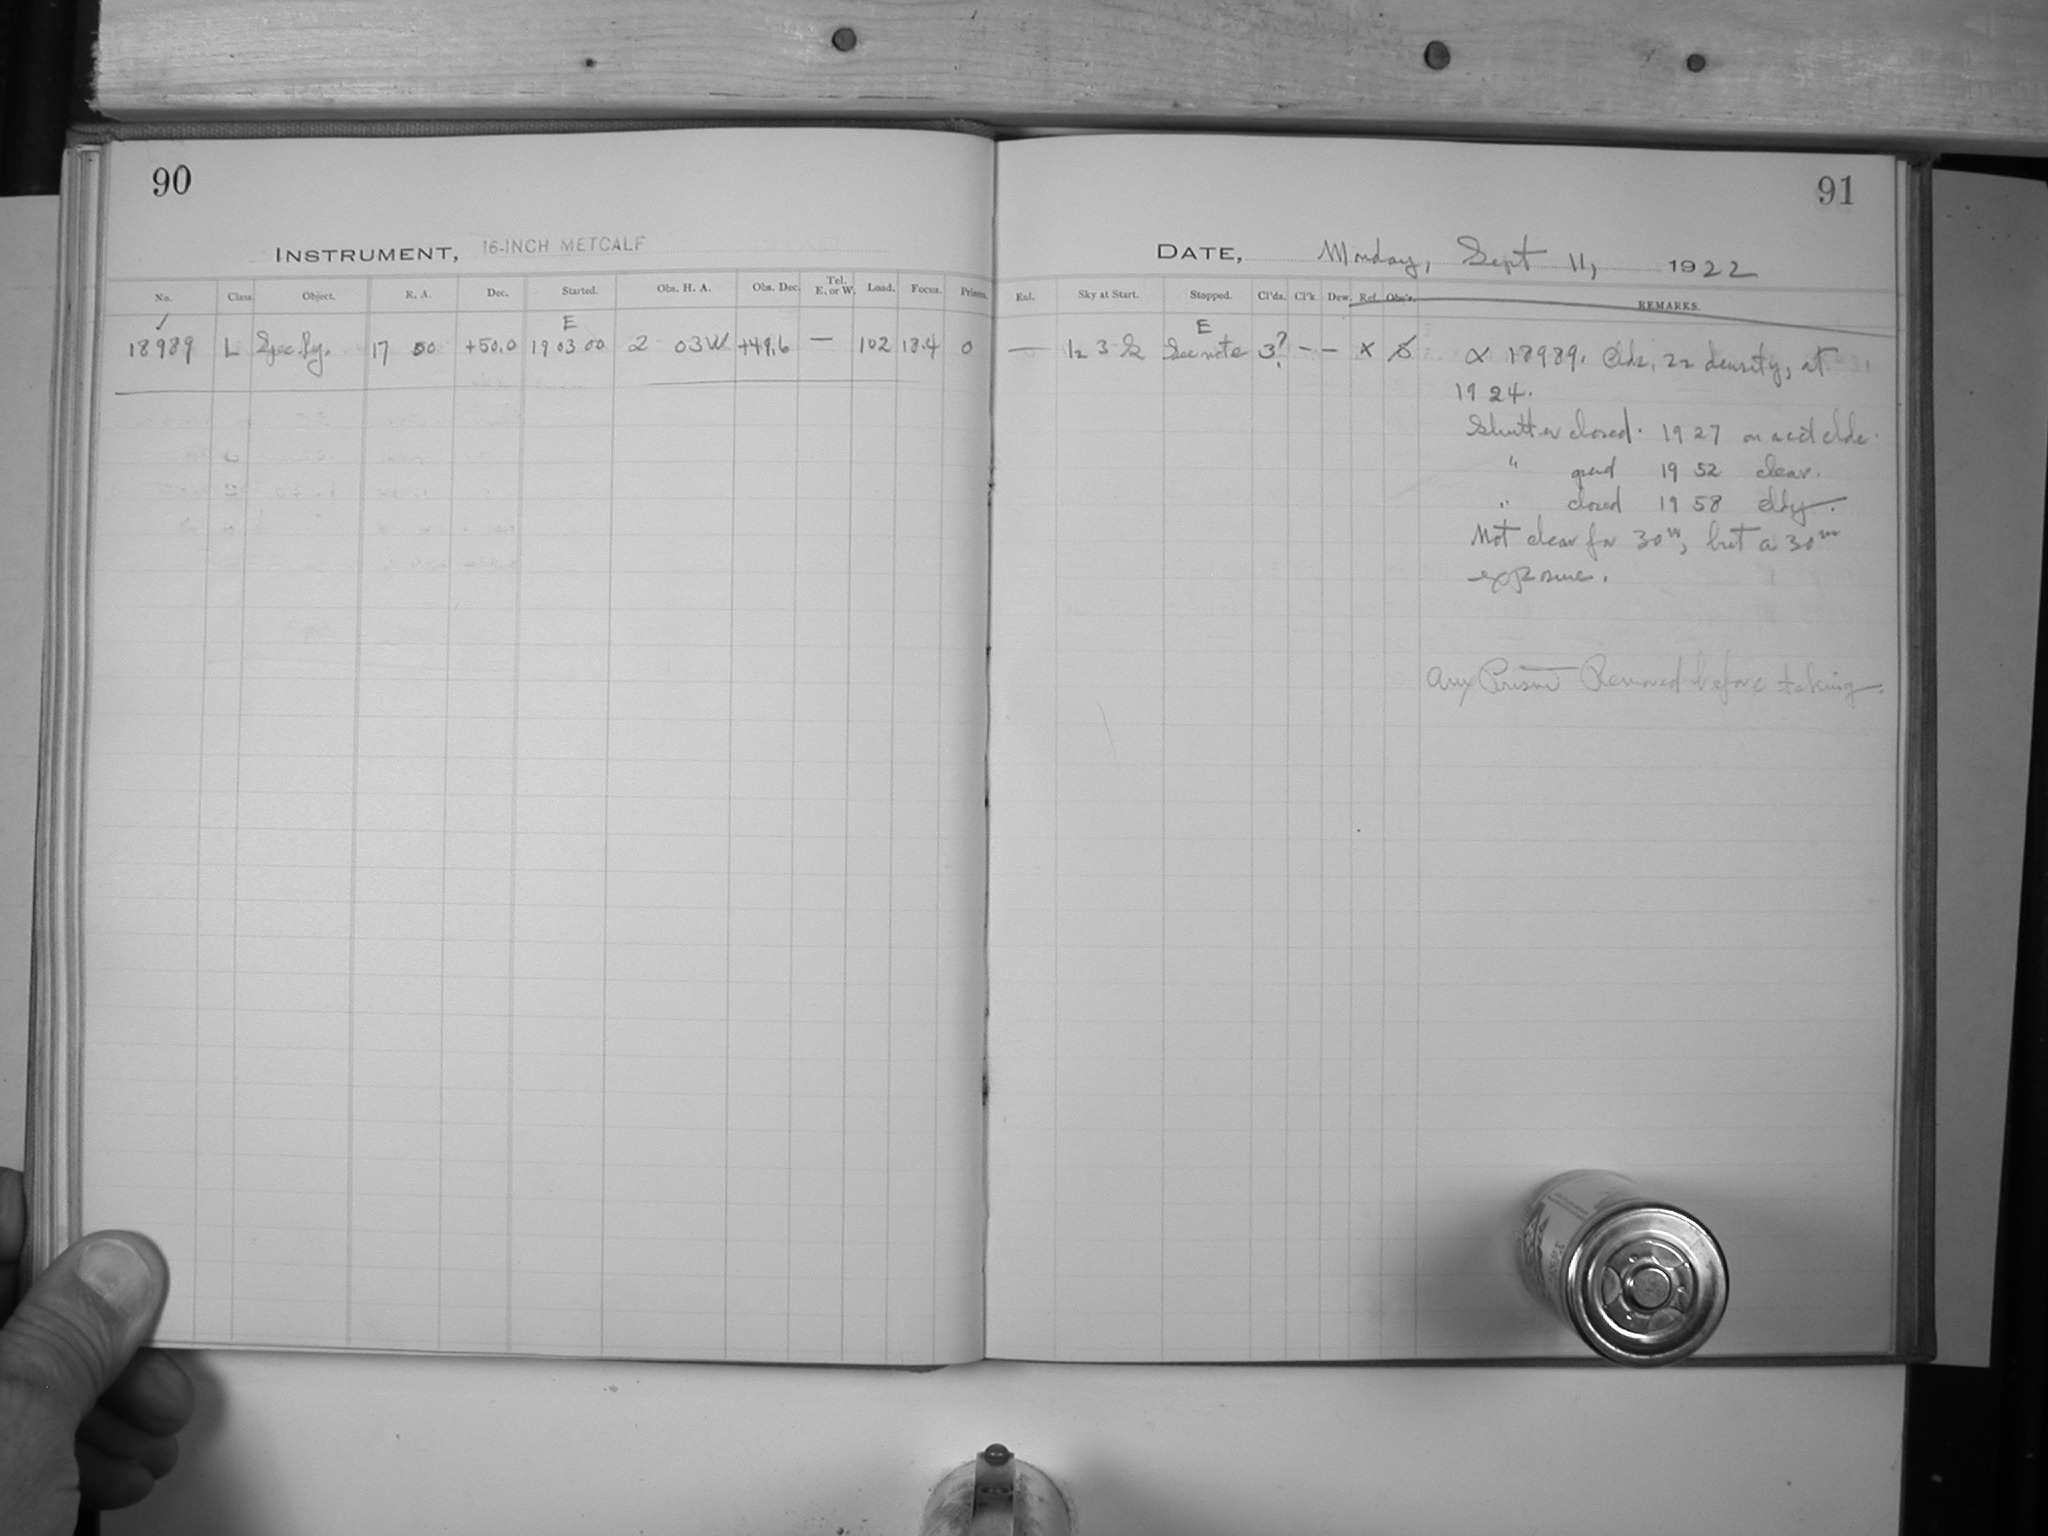 90
91
INSTRUMENT, 16-INCH METCALF
DATE, Monday, Sept 11, 1922
No. Class. Object. R. A. Dec. Started. Obs. H. A. Obs. Dec. Tel. E. or W. Load. Focus. Prisms.
Enl. Sky at Start. Stopped. Cl'ds. Cl'k. Dew. Ref. Obs'r. REMARKS.
✓ E
18989 L Spec. Rg. 17 50 +50.0 19 03 00 2 03W +49.6 — 102 13.4 0
E
— 3 See note 3? – – x
α 18989. Clds, density, at
19 24.
Shutter closed. 19 27 on acct clds.
" 19 52 clear.
" closed 19 58 cldy.
Not clear for 30m, but a 30m
exposure.
Aux Prism Removed before taking.